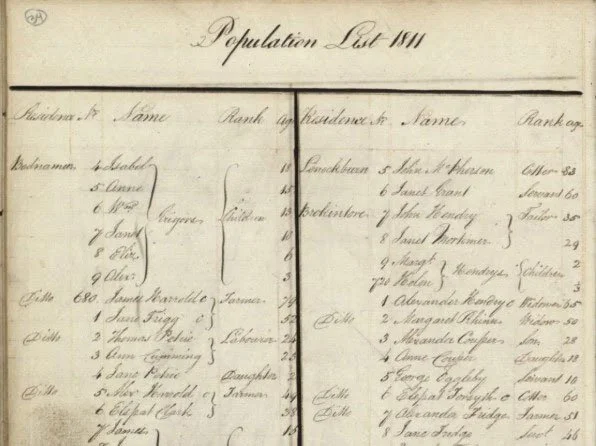 Population List 1811
Residence No Name Rank age
4 Isabel 18
5 Anne 15
6 Wm 13
Grigors Children
7 Janet 10
8 Eliz. 6
9 Alexr 3
Ditto 680 James Harrold Farmer
1 Jane Frigg 52
Ditto 2 Thomas Petrie Labourer
3 Ann Cumming 25
4 Jane Petrie Daughter 2
Ditto 5 Alexr Harrold Farmer 44
6 Elspat Clark 38
7 James 15
Residence No Name Rank age
5 John McPherson Cotter 83
6 Janet Grant Servant 60
7 John Hendry Tailor 35
8 Janet Mortimer 29
9 Margt 2
Hendrys Children
720 Helen 3
1 Alexander Hendry Widower 65
Ditto 2 Margaret Widow 50
3 Alexander Couper Son 28
4 Anne Couper Daughter 18
5 George Servant 10
Ditto 6 Elspat Forsyth Cotter 60
Ditto 7 Alexander Fridge Farmer 51
8 Jane Fridge 46